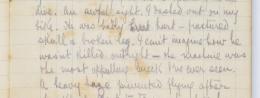 die. An awful sight. I rushed out on my
bike. He was badly hurt - fractured
skull & broken leg. I can't imagine how he
wasn't killed outright - the machine was
the most appalling wreck I've ever seen.
A heavy prevented flying after